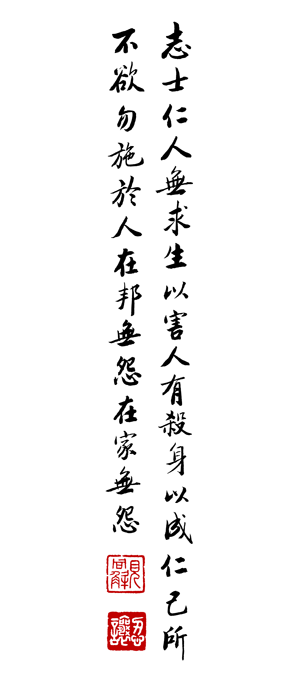 志士仁人無求生以害人有殺身以成仁己所
不欲勿施於人在邦無怨在家無怨